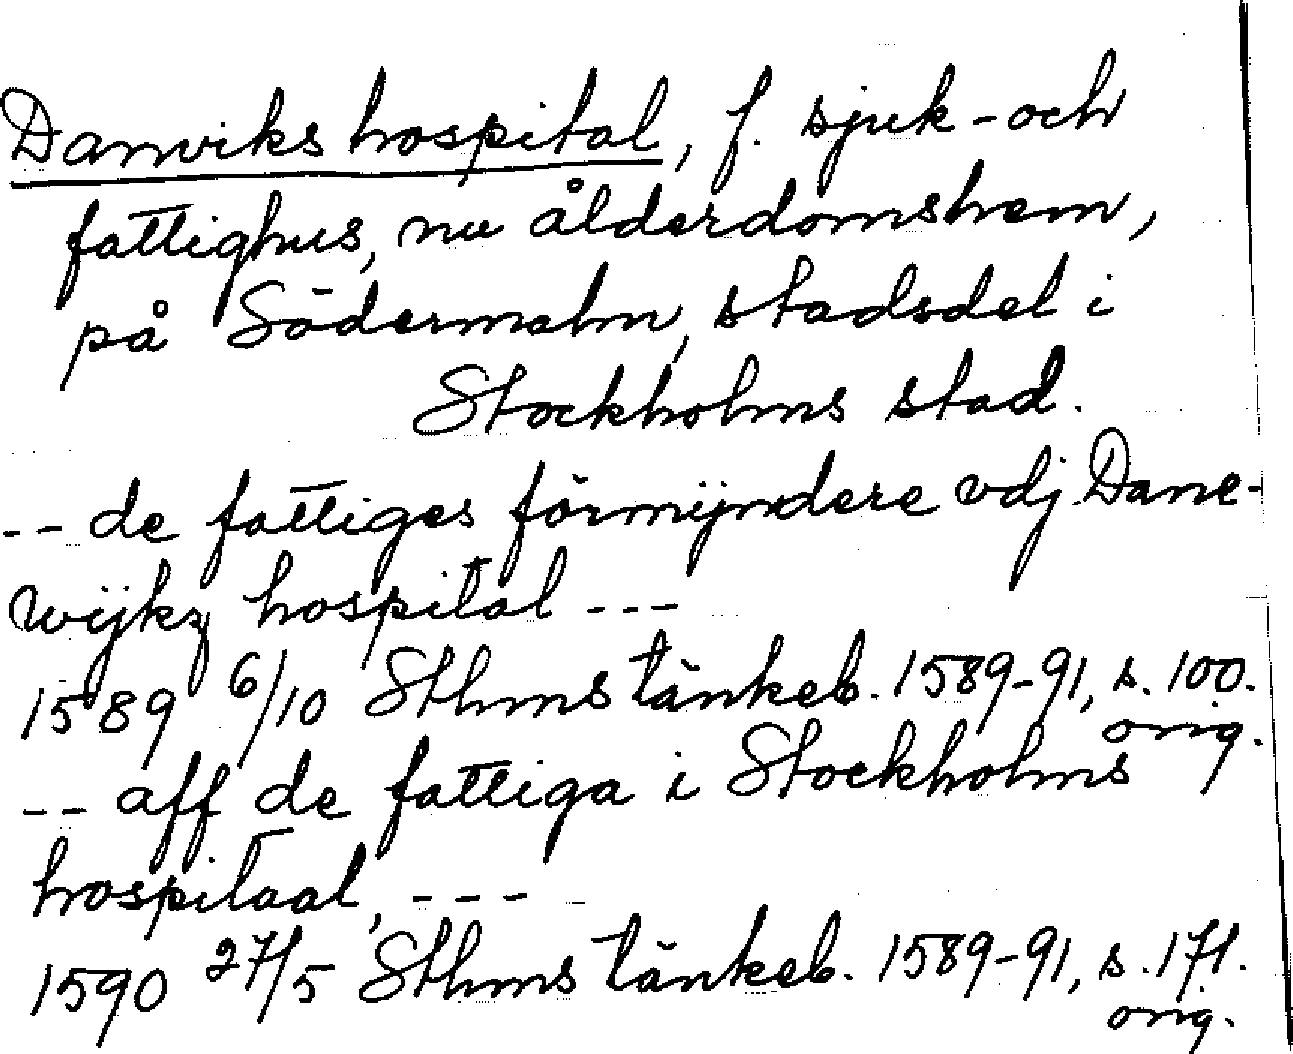 Danviks hospital, f. sjuk- och
fattighus, nu ålderdomshem,
på Södermalm, stadsdel i
Stockholms stad.
-- de fattiges förmÿndere vdj Dane-
wijkz hospital ---
1589 6/10 Sthms tänkeb. 1589-91, s. 100.
orig.
-- aff de fattiga i Stockholms
hospitaal, ---
1590 27/5 Sthms tänkeb. 1589-91, s. 171.
orig.